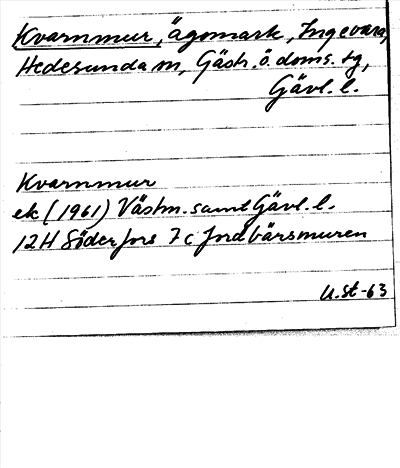 Kvarnmur, Ägomark, Ingevara,
Hedesunda sn, Gästr. ö. doms. tg,
Gävl. l.
Kvarnmur
ek (1961) Västm. samt Gävl. l.
12H Söderfors 7c Jordbärsmuren
U.St-63